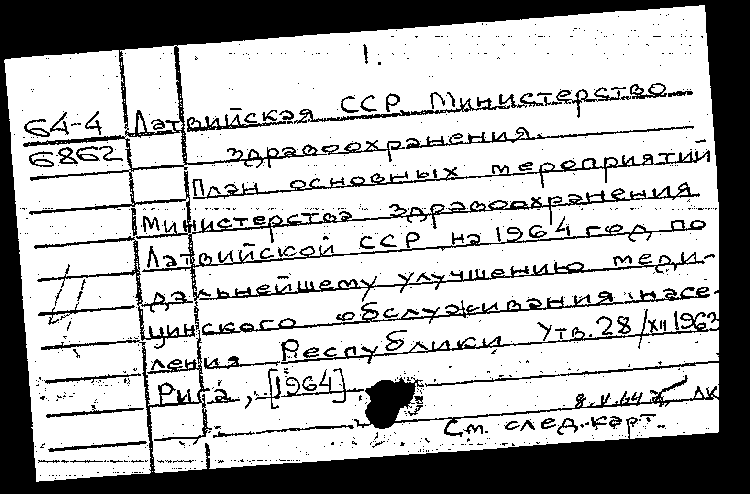 1.
64-4 Латвийская ССР. Министерство
6862 здравоохранения.
План основных мероприятий
Министерства здравоохранения
Латвийской ССР на 1964 год по
дальнейшему улучшению меди-
цинского обслуживания насе-
ления Республики Утв. 28/XII 1963
Рига, [1964]
8.V.64 ЛК
См. след. карт.